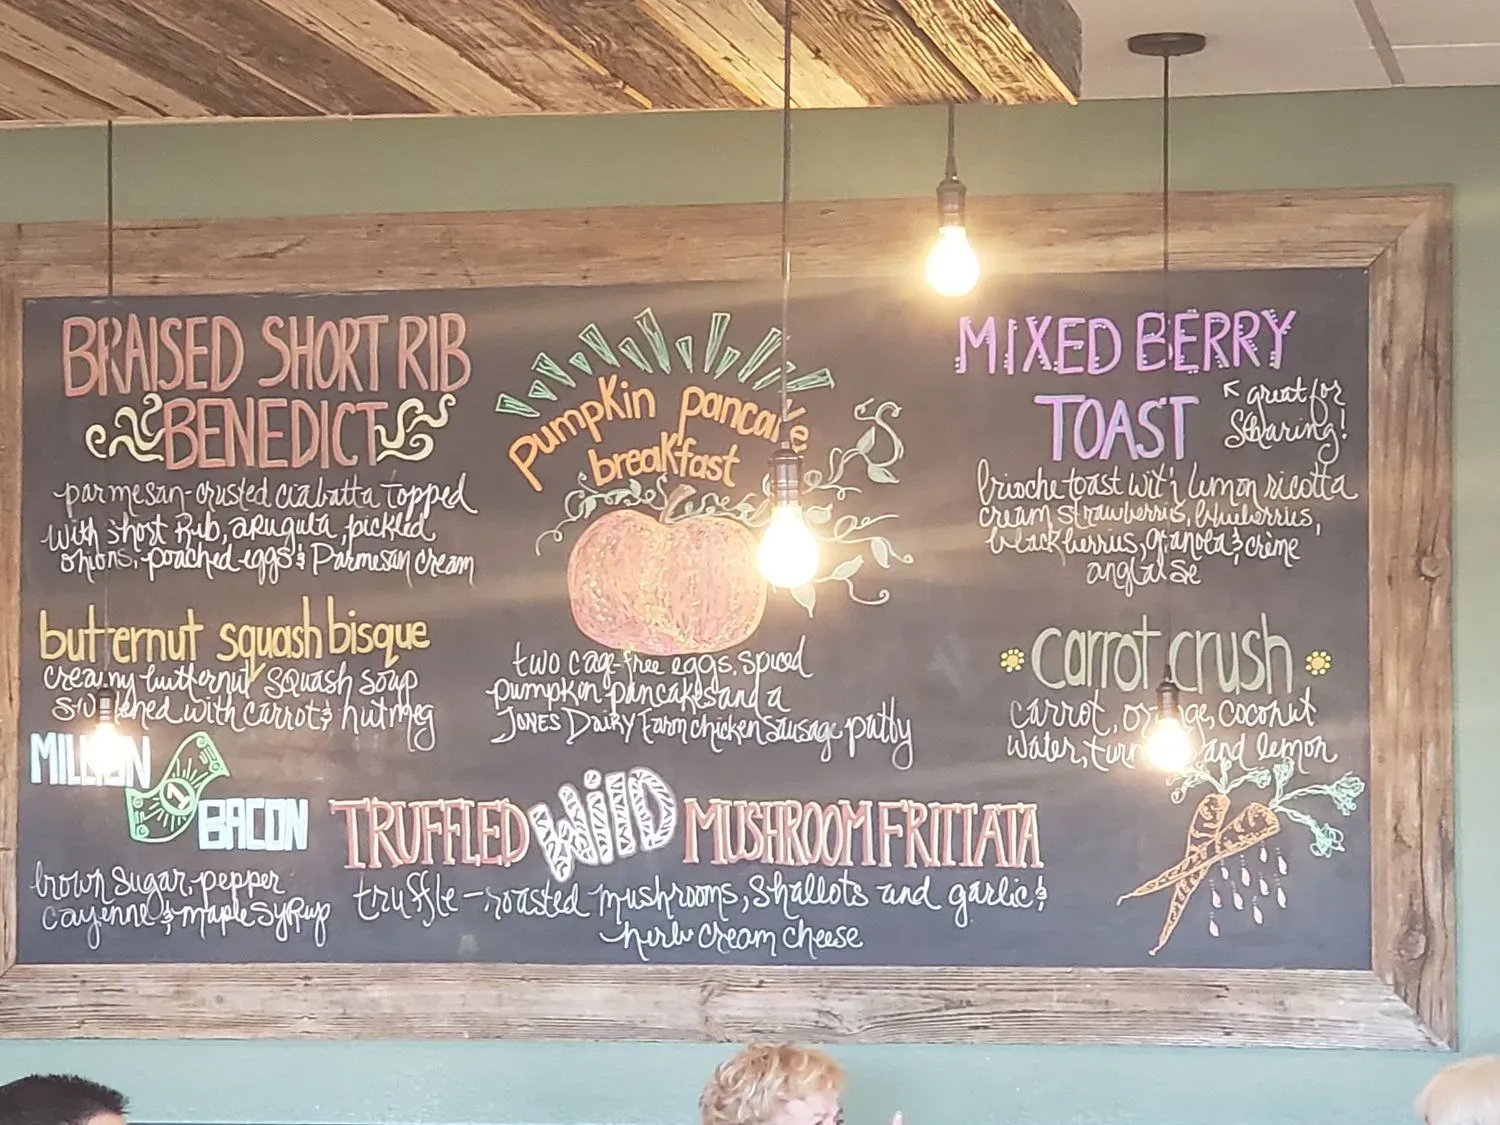 BRAISED SHORT RIB
BENEDICT
parmesan-crusted ciabatta topped
with short Rib, arugula, pickled
onions, poached eggs & Parmesan cream
butternut squash bisque
creamy butternut squash soup
with carrot & nutmeg
MILLION
1
BACON
brown sugar, pepper
cayenne & maple syrup
pumpkin pancake
breakfast
two cage-free eggs, spiced
pumpkin pancakes and a
JONES DAIRY Farm chicken sausage patty
TRUFFLED WILD MUSHROOM FRITTATA
truffle-roasted mushrooms, shallots and garlic &
herb cream cheese
MIXED BERRY
TOAST
great for
Sharing!
brioche toast with lemon ricotta
cream strawberries, blueberries,
blackberries, granola & crème
anglaise
carrot crush
carrot, orange, coconut
water, and lemon